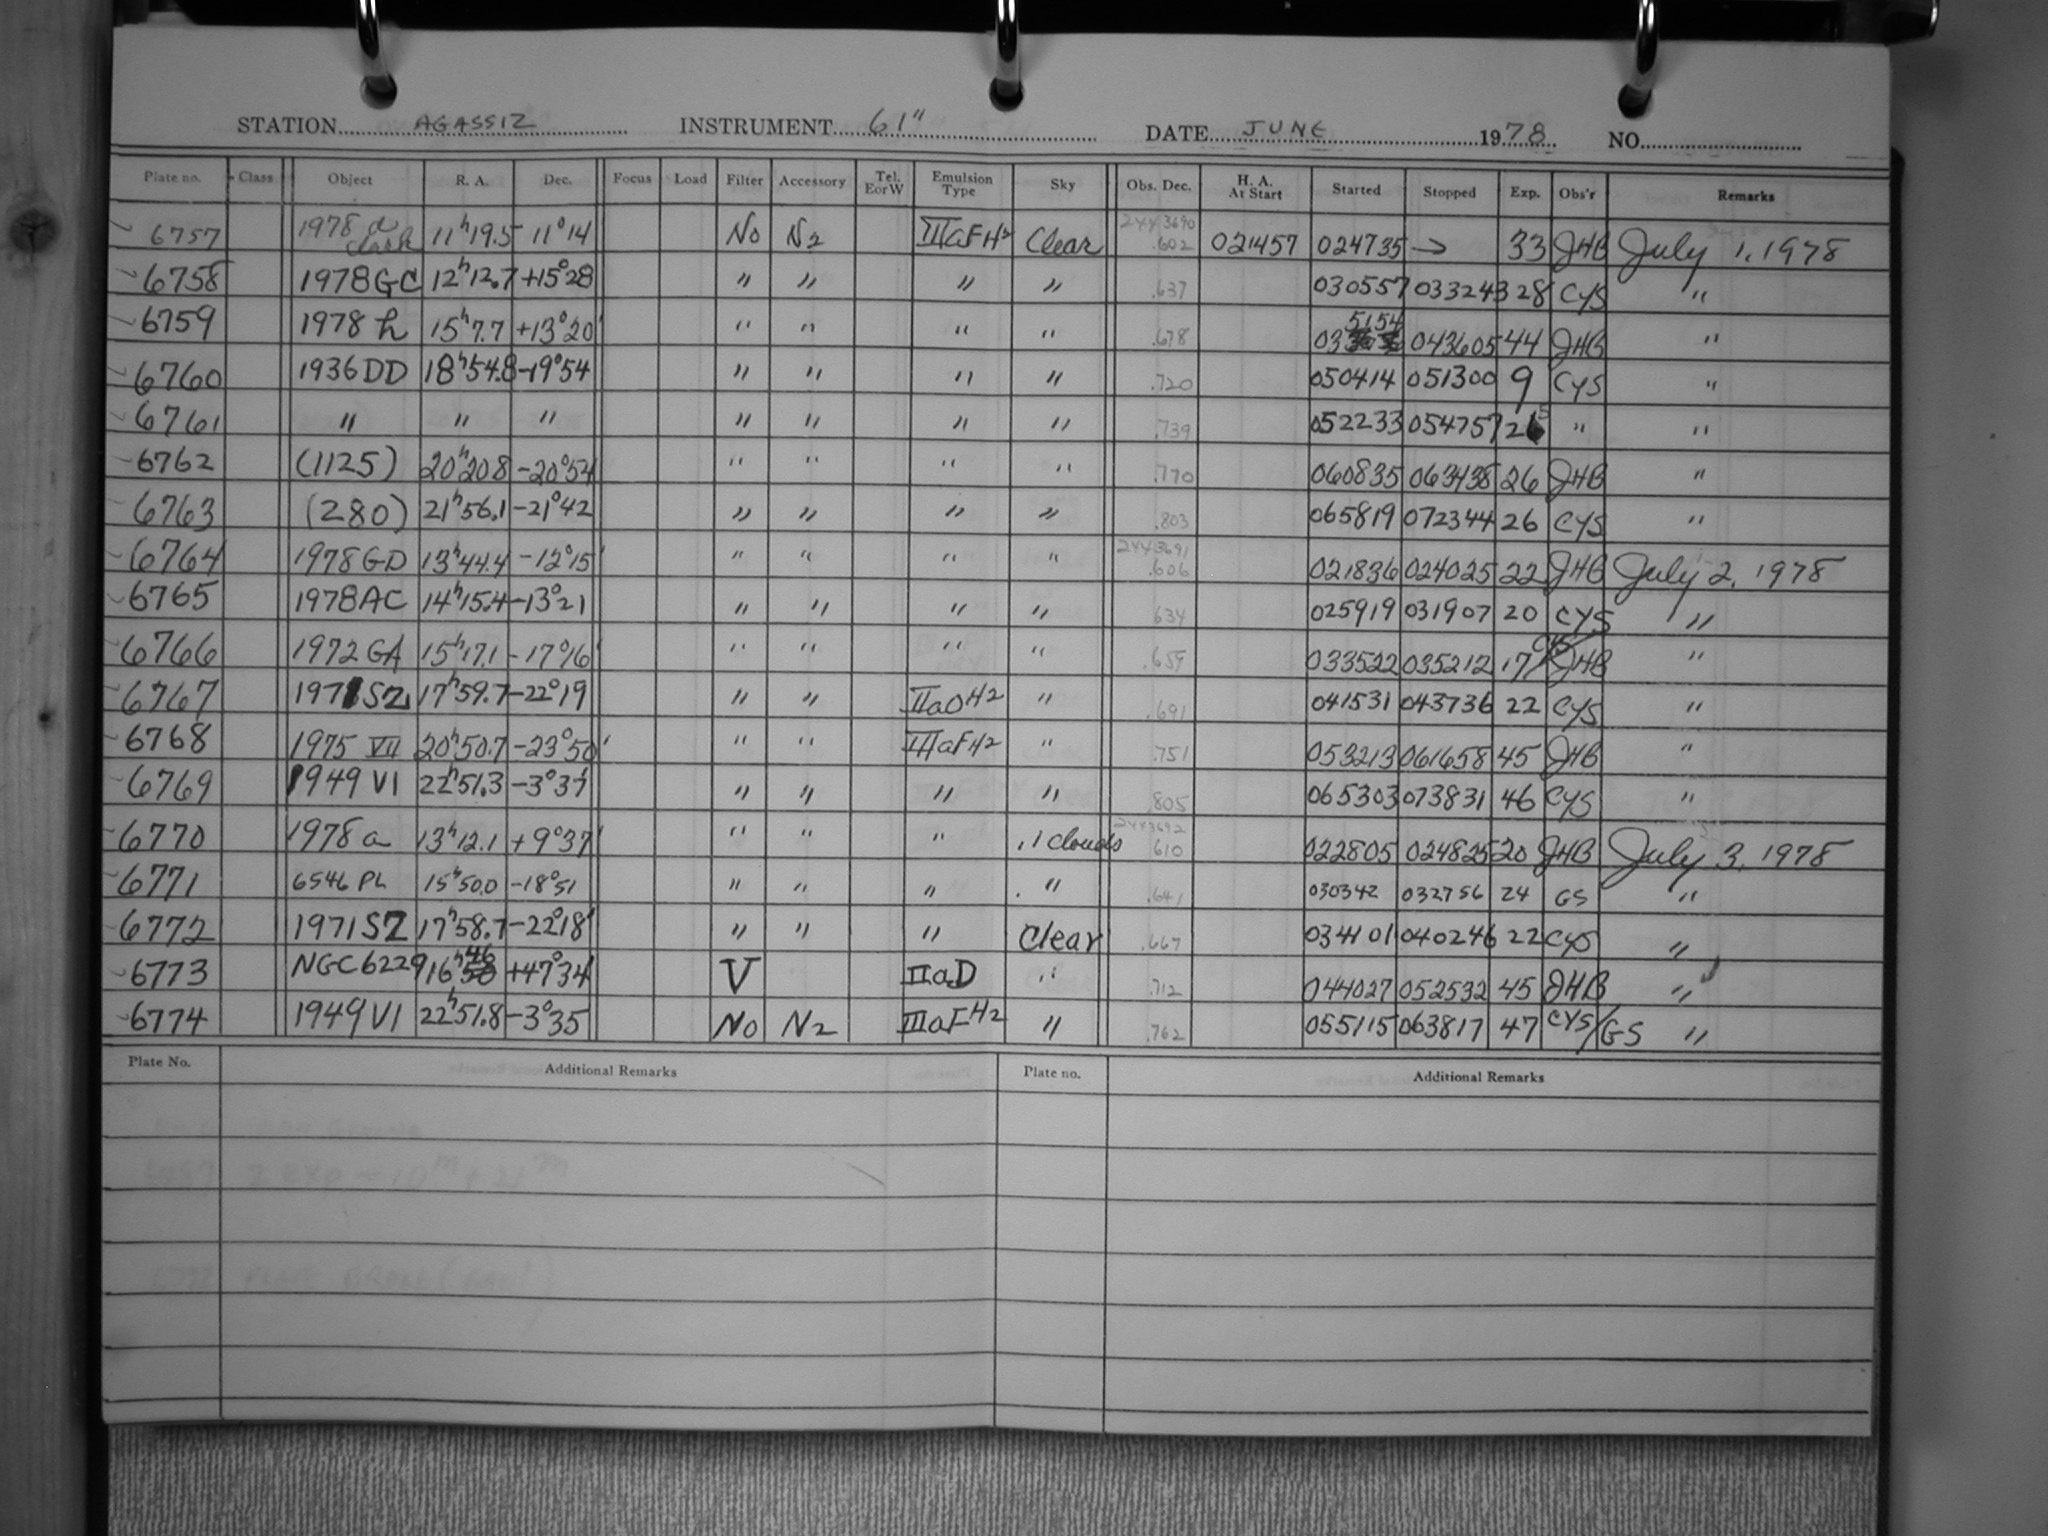 STATION AGASSIZ INSTRUMENT 61" DATE JUNE 1978 NO.
Plate no. Class Object R. A. Dec. Focus Load Filter Accessory Tel. E or W Emulsion Type Sky Obs. Dec. H. A. At Start Started Stopped Exp. Obs'r Remarks
6757 1978 a 11h19.5 11°14 No N2 IIIaFH2 Clear 2443690 .602 021457 024735 → 33 JHB July 1, 1978
6758 1978GC 12h12.7 +15°28 " " " " .637 030557 033243 28 CYS "
6759 1978 h 15h7.7 +13°20' " " " " .678 03 5154 043605 44 JHB "
6760 1936DD 18h54.8 -19°54 " " " " .720 050414 051300 9 CYS "
6761 " " " " " " " .739 052233 054757 25 " "
6762 (1125) 20h20.8 -20°54 " " " " .770 060835 063438 26 JHB "
6763 (280) 21h56.1 -21°42 " " " " .803 065819 072344 26 CYS "
6764 1978GD 13h44.4 -12°15' " " " " 2443691 .606 021836 024025 22 JHB July 2, 1978
6765 1978AC 14h15.4 -13°21 " " " " .634 025919 031907 20 CYS "
6766 1972GA 15h17.1 -17°16' " " " " .659 033522 035212 17 CYS/JHB "
6767 1971SZ 17h59.7 -22°19 " " IIaOH2 " .691 041531 043736 22 CYS "
6768 1975 VII 20h50.7 -23°50' " " IIIaFH2 " .751 053213 061658 45 JHB "
6769 1949 VI 22h51.3 -3°37' " " " " .805 065303 073831 46 CYS "
6770 1978 a 13h12.1 +9°37' " " " .1 clouds 2443692 .610 022805 024825 20 JHB July 3, 1978
6771 6546 PL 15h50.0 -18°51 " " " " .641 030342 032756 24 GS "
6772 1971SZ 17h58.7 -22°18' " " " Clear .667 034101 040246 22 CYS "
6773 NGC6229 16h46 +47°34' V IIaD " .712 044027 052532 45 JHB "
6774 1949VI 22h51.8 -3°35 No N2 IIIaFH2 " .762 055115 063817 47 CYS/GS "
Plate No. Additional Remarks Plate no. Additional Remarks